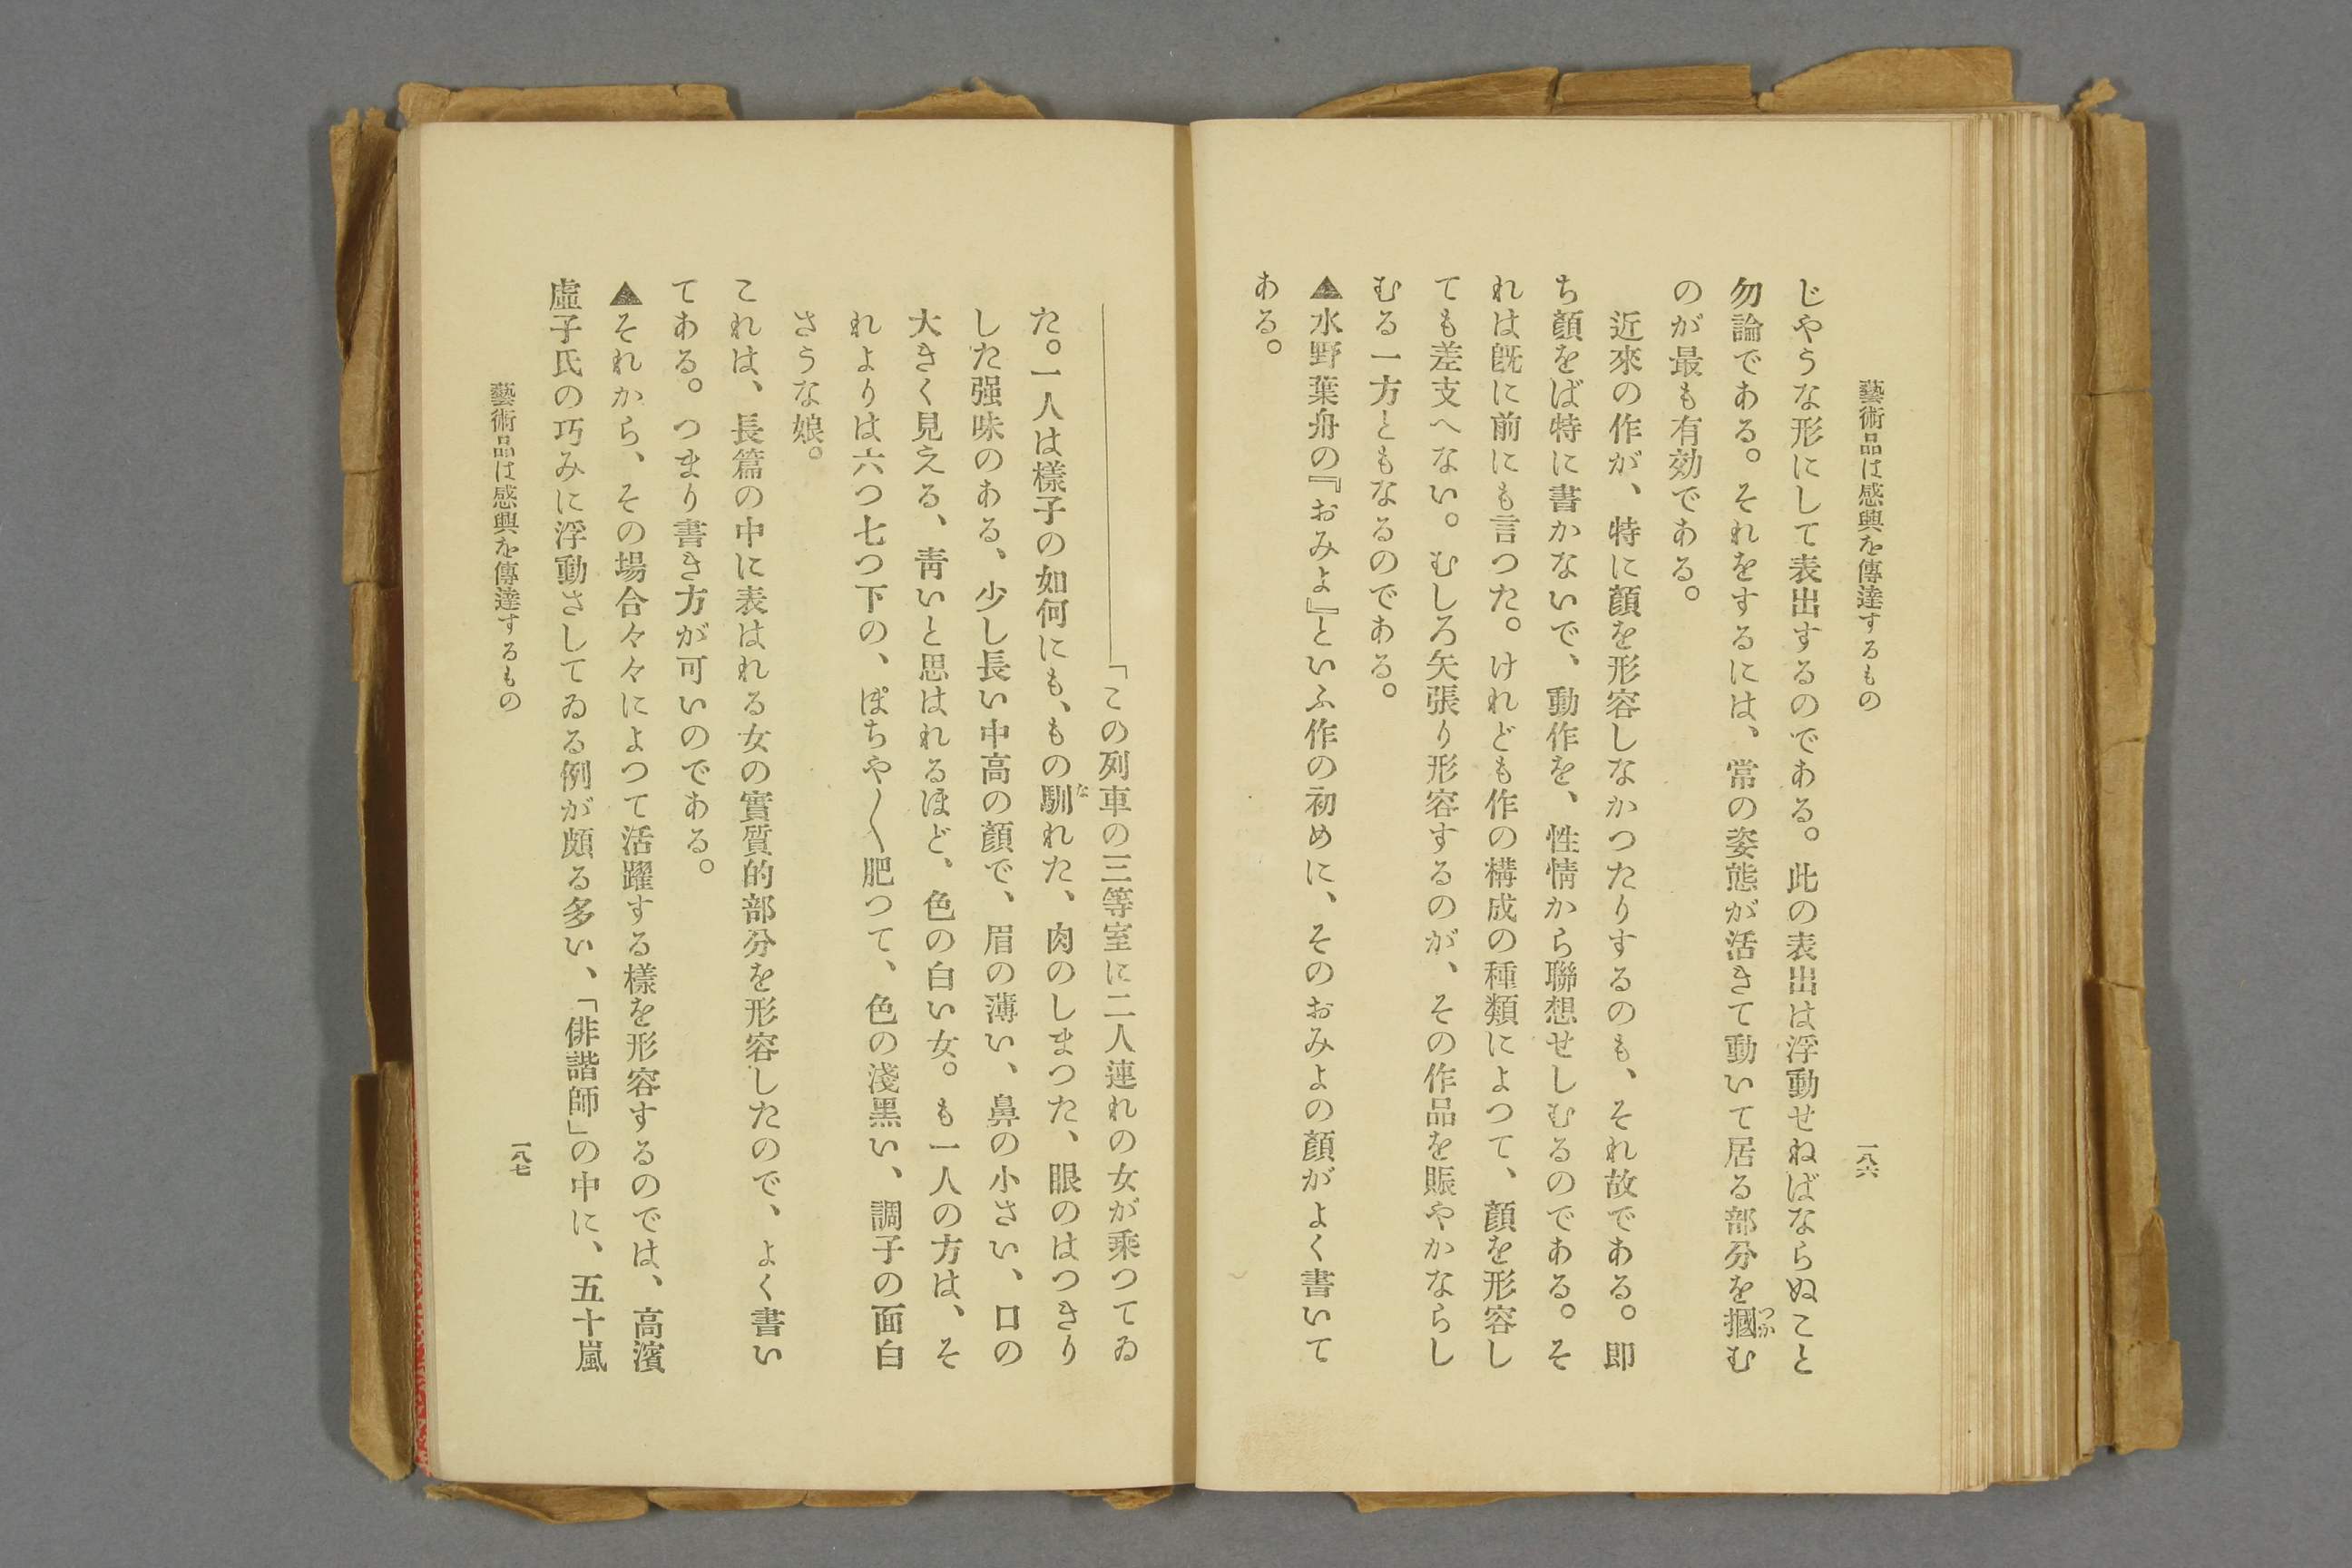 藝術品は感興を傳達するもの
一八六
じやうな形にして表出するのである。此の表出は浮動せねばならぬこと
勿論である。それをするには、常の姿態が活きて動いて居る部分を摑む
つか
のが最も有効である。
近來の作が、特に顏を形容しなかつたりするのも、それ故である。即
ち顏をば特に書かないで、動作を、性情から聯想せしむるのである。そ
れは旣に前にも言つた。けれども作の構成の種類によつて、顏を形容し
ても差支へない。むしろ矢張り形容するのが、その作品を賑やかならし
むる一方ともなるのである。
▲水野葉舟の『おみよ』といふ作の初めに、そのおみよの顏がよく書いて
ある。
――――――「この列車の三等室に二人連れの女が乘つてゐ
た。一人は樣子の如何にも、もの馴れた、肉のしまつた、眼のはつきり
な
した强味のある、少し長い中高の顏で、眉の薄い、鼻の小さい、口の
大きく見える、靑いと思はれるほど、色の白い女。も一人の方は、そ
れよりは六つ七つ下の、ぽちや〱肥つて、色の淺黑い、調子の面白
さうな娘。
これは、長篇の中に表はれる女の實質的部分を形容したので、よく書い
てある。つまり書き方が可いのである。
▲それから、その場合々々によつて活躍する樣を形容するのでは、高濱
虛子氏の巧みに浮動さしてゐる例が頗る多い、「俳諧師」の中に、五十嵐
藝術品は感興を傳達するもの
一八七